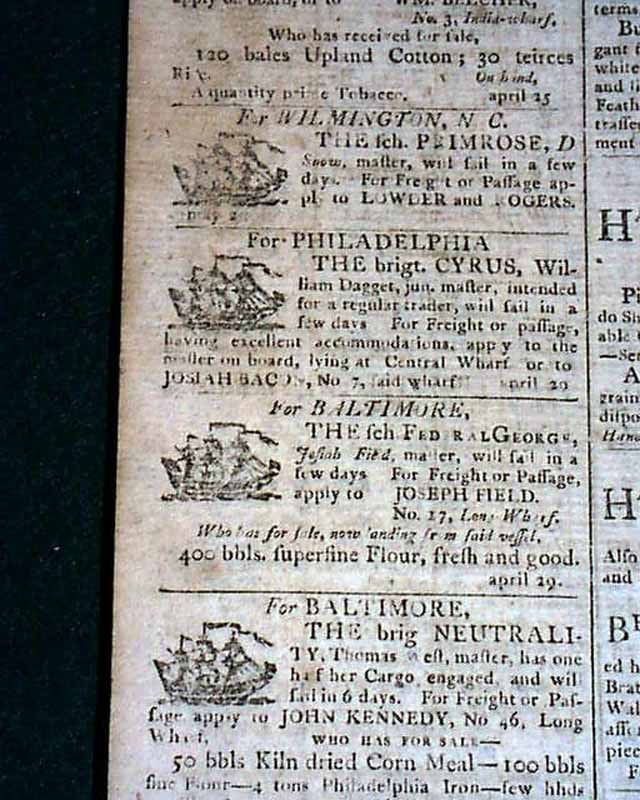 apply on board, or to WM. BELCHER,
No. 3, India-wharf,
Who has received for sale,
120 bales Upland Cotton; 30 teirces
On hand,
A quantity prime Tobacco. april 25
For WILMINGTON, N C.
THE sch. PRIMROSE, D
Snow, master, will sail in a few
days. For Freight or Passage ap-
ply to LOWDER and ROGERS.
may
For PHILADELPHIA
THE brigt. CYRUS, Wil-
liam Dagget, jun. master, intended
for a regular trader, will sail in a
few days For Freight or passage,
having excellent accommodations, apply to the
master on board, lying at Central Wharf or to
JOSIAH BACON, No 7, said wharf april 29
For BALTIMORE,
THE sch FED RAL GEORGE,
Josiah Field, master, will sail in a
few days For Freight or Passage,
apply to JOSEPH FIELD.
No. 17, Long Wharf.
Who has for sale, now landing from said vessel,
400 bbls. superfine Flour, fresh and good.
april 29.
For BALTIMORE,
THE brig NEUTRALI-
TY, Thomas West, master, has one
half her Cargo engaged, and will
sail in 6 days. For Freight or Pas-
sage apply to JOHN KENNEDY, No 46, Long
Wharf, WHO HAS FOR SALE—
50 bbls Kiln dried Corn Meal—100 bbls
fine Flour—4 tons Philadelphia Iron—few hhds
terms
Bu
gant
white
and
Feath
traffe
ment
H
Pi
do Sh
able
—Se
A
grain
dispo
Hano
H
Also
and
BE
ed h
Bra
Wal
asso
piec
F